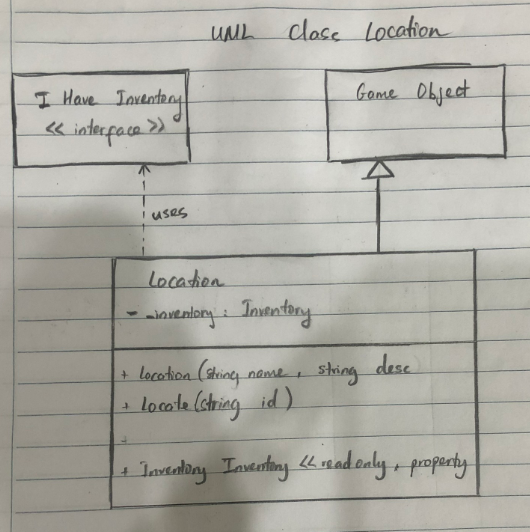 UML Class Location
I Have Inventory
<< interface >>
Game Object
uses
Location
- _inventory : Inventory
+ Location (string name, string desc
+ Locate (string id)
+
+ Inventory Inventory << readonly, property